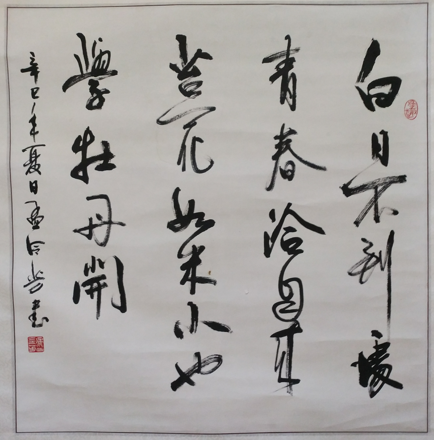 白日不到處
青春恰自來
苔花如米小也
學牡丹開
辛巳年夏日孟令書